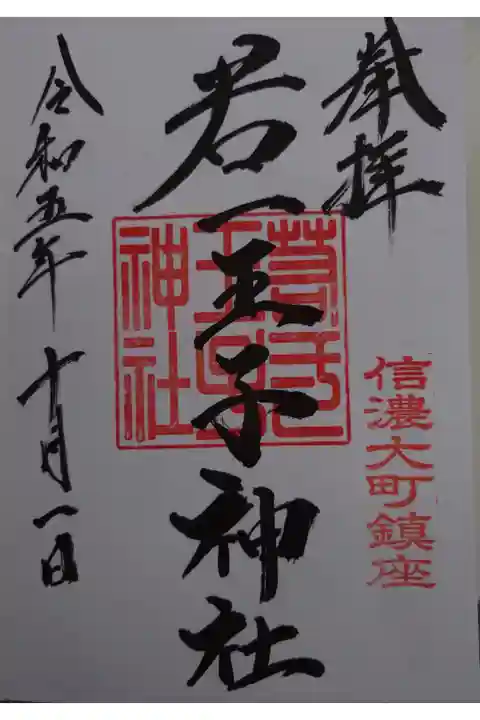 奉拝
信濃大町鎮座
若一王子神社
神社
令和五年十月一日